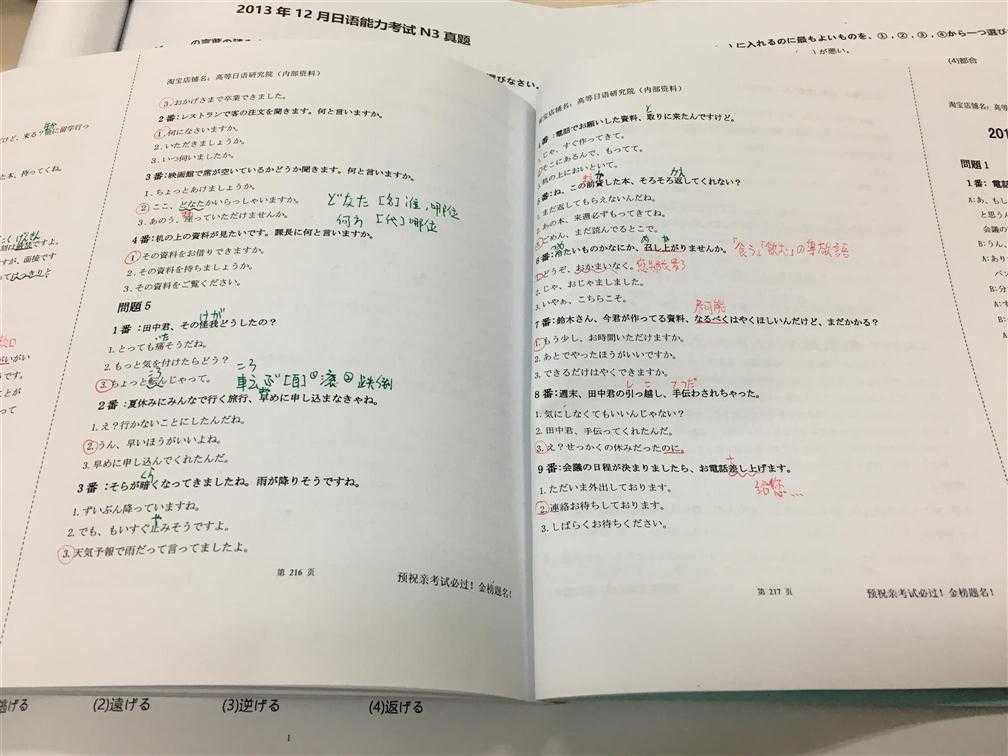 2013年12月日语能力考试N3真题
に入れるのに最もよいものを、①,②,③,④から一つ選び
びなさい。
が悪い。
(4)都合
淘宝店铺名：高等日语研究院（内部资料）
3.おかげさまで卒業できました。
2番：レストランで客の注文を聞きます。何と言いますか。
1.何になさいますか。
2.いただきましょうか。
3.いつ伺いましたか。
3番：映画館で席が空いているかどうか聞きます。何と言いますか。
1.ちょっとあけましょうか。
2.ここ、どなたかいらっしゃいますか。
3.あのう、座っていただけませんか。
どなた [名] 谁，哪位
[代] 哪位
4番：机の上の資料が見たいです。課長に何と言いますか。
1.その資料をお借りできますか。
2.その資料を持ちましょうか。
3.その資料をご覧ください。
問題5
けが
1番：田中君、その怪我どうしたの？
1.とっても痛そうだね。
2.もっと気を付けたらどう？
ころ
3.ちょっと転んじゃって。
転ぶ [自] ①滚 ②跌倒
2番：夏休みにみんなで行く旅行、早めに申し込まなきゃね。
1.え？行かないことにしたんだね。
2.うん、早いほうがいいよね。
3.早めに申し込んでくれたんだ。
くら
3番：そらが暗くなってきましたね。雨が降りそうですね。
1.ずいぶん降っていますね。
や
2.でも、もいすぐ止みそうですよ。
3.天気予報で雨だって言ってましたよ。
第 216 页
预祝亲考试必过！金榜题名！
淘宝店铺名：高等日语研究院（内部资料）
と
番：電話でお願いした資料、取りに来たんですけど。
じゃ、すぐ作ってきて。
そこにあるんで、もってて。
机の上においといて。
かえ
番：ね、この前貸した本、そろそろ返してくれない？
まだ返してもらえないんだね。
あの本、来週必ずもってきてね。
ごめん、まだ読んでるとこで。
め あ
6番：冷たいものかなにか、召し上がりませんか。
「食う」「飲む」の尊敬語
どうぞ、おかまいなく。
2.じゃ、おじゃましました。
3.いやぁ、こちらこそ。
尽可能
7番：鈴木さん、今君が作ってる資料、なるべくはやくほしいんだけど、まだかかる？
1.もう少し、お時間いただけますか。
2.あとでやったほうがいいですか。
3.できるだけはやくできますか。
ひ こ てつだ
8番：週末、田中君の引っ越し、手伝わされちゃった。
1.気にしなくてもいいんじゃない？
2.田中君、手伝ってくれたんだ。
3.え？せっかくの休みだったのに。
さ
9番：会議の日程が決まりましたら、お電話差し上げます。
给您...
1.ただいま外出しております。
2.連絡お待ちしております。
3.しばらくお待ちください。
第 217 页
预祝亲考试必过！金榜题名！
淘宝店
201
問題1
1番：電話
と思う
会議の
B:うん
A:あり
(2)遠げる
(3)逆げる
(4)返げる